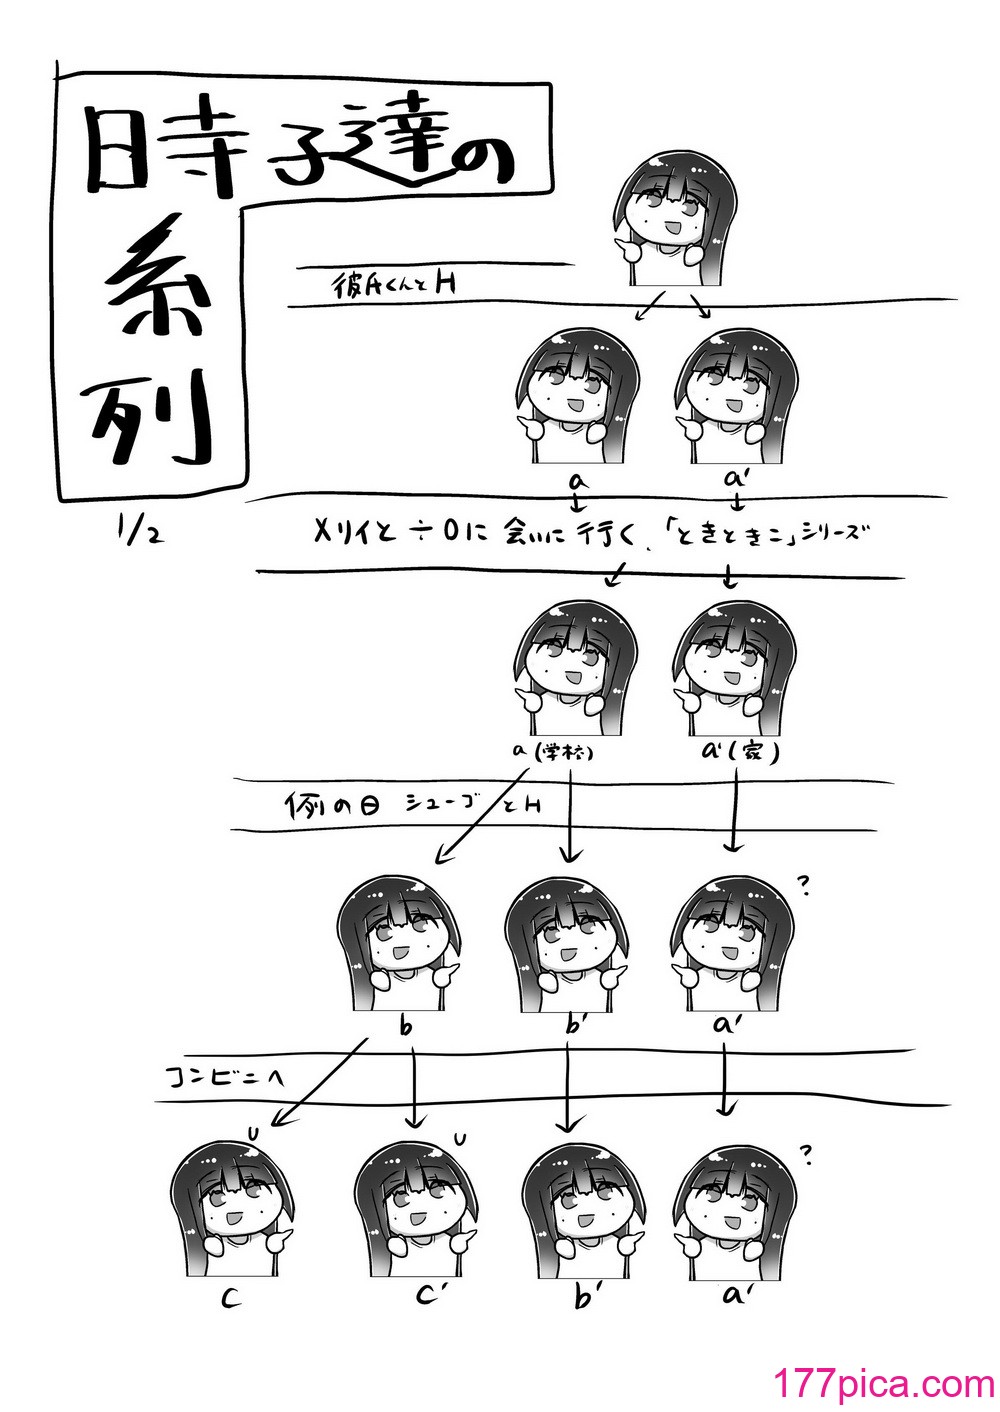 時子達の
系
列
1/2
彼氏くんとH
a
a'
メリイと÷0に会いに行く、「ときときこ」シリーズ
a (学校)
a' (家)
例の日 シューゴとH
?
b
b'
a'
コンビニへ
?
c
c'
b'
a'
177pica.com